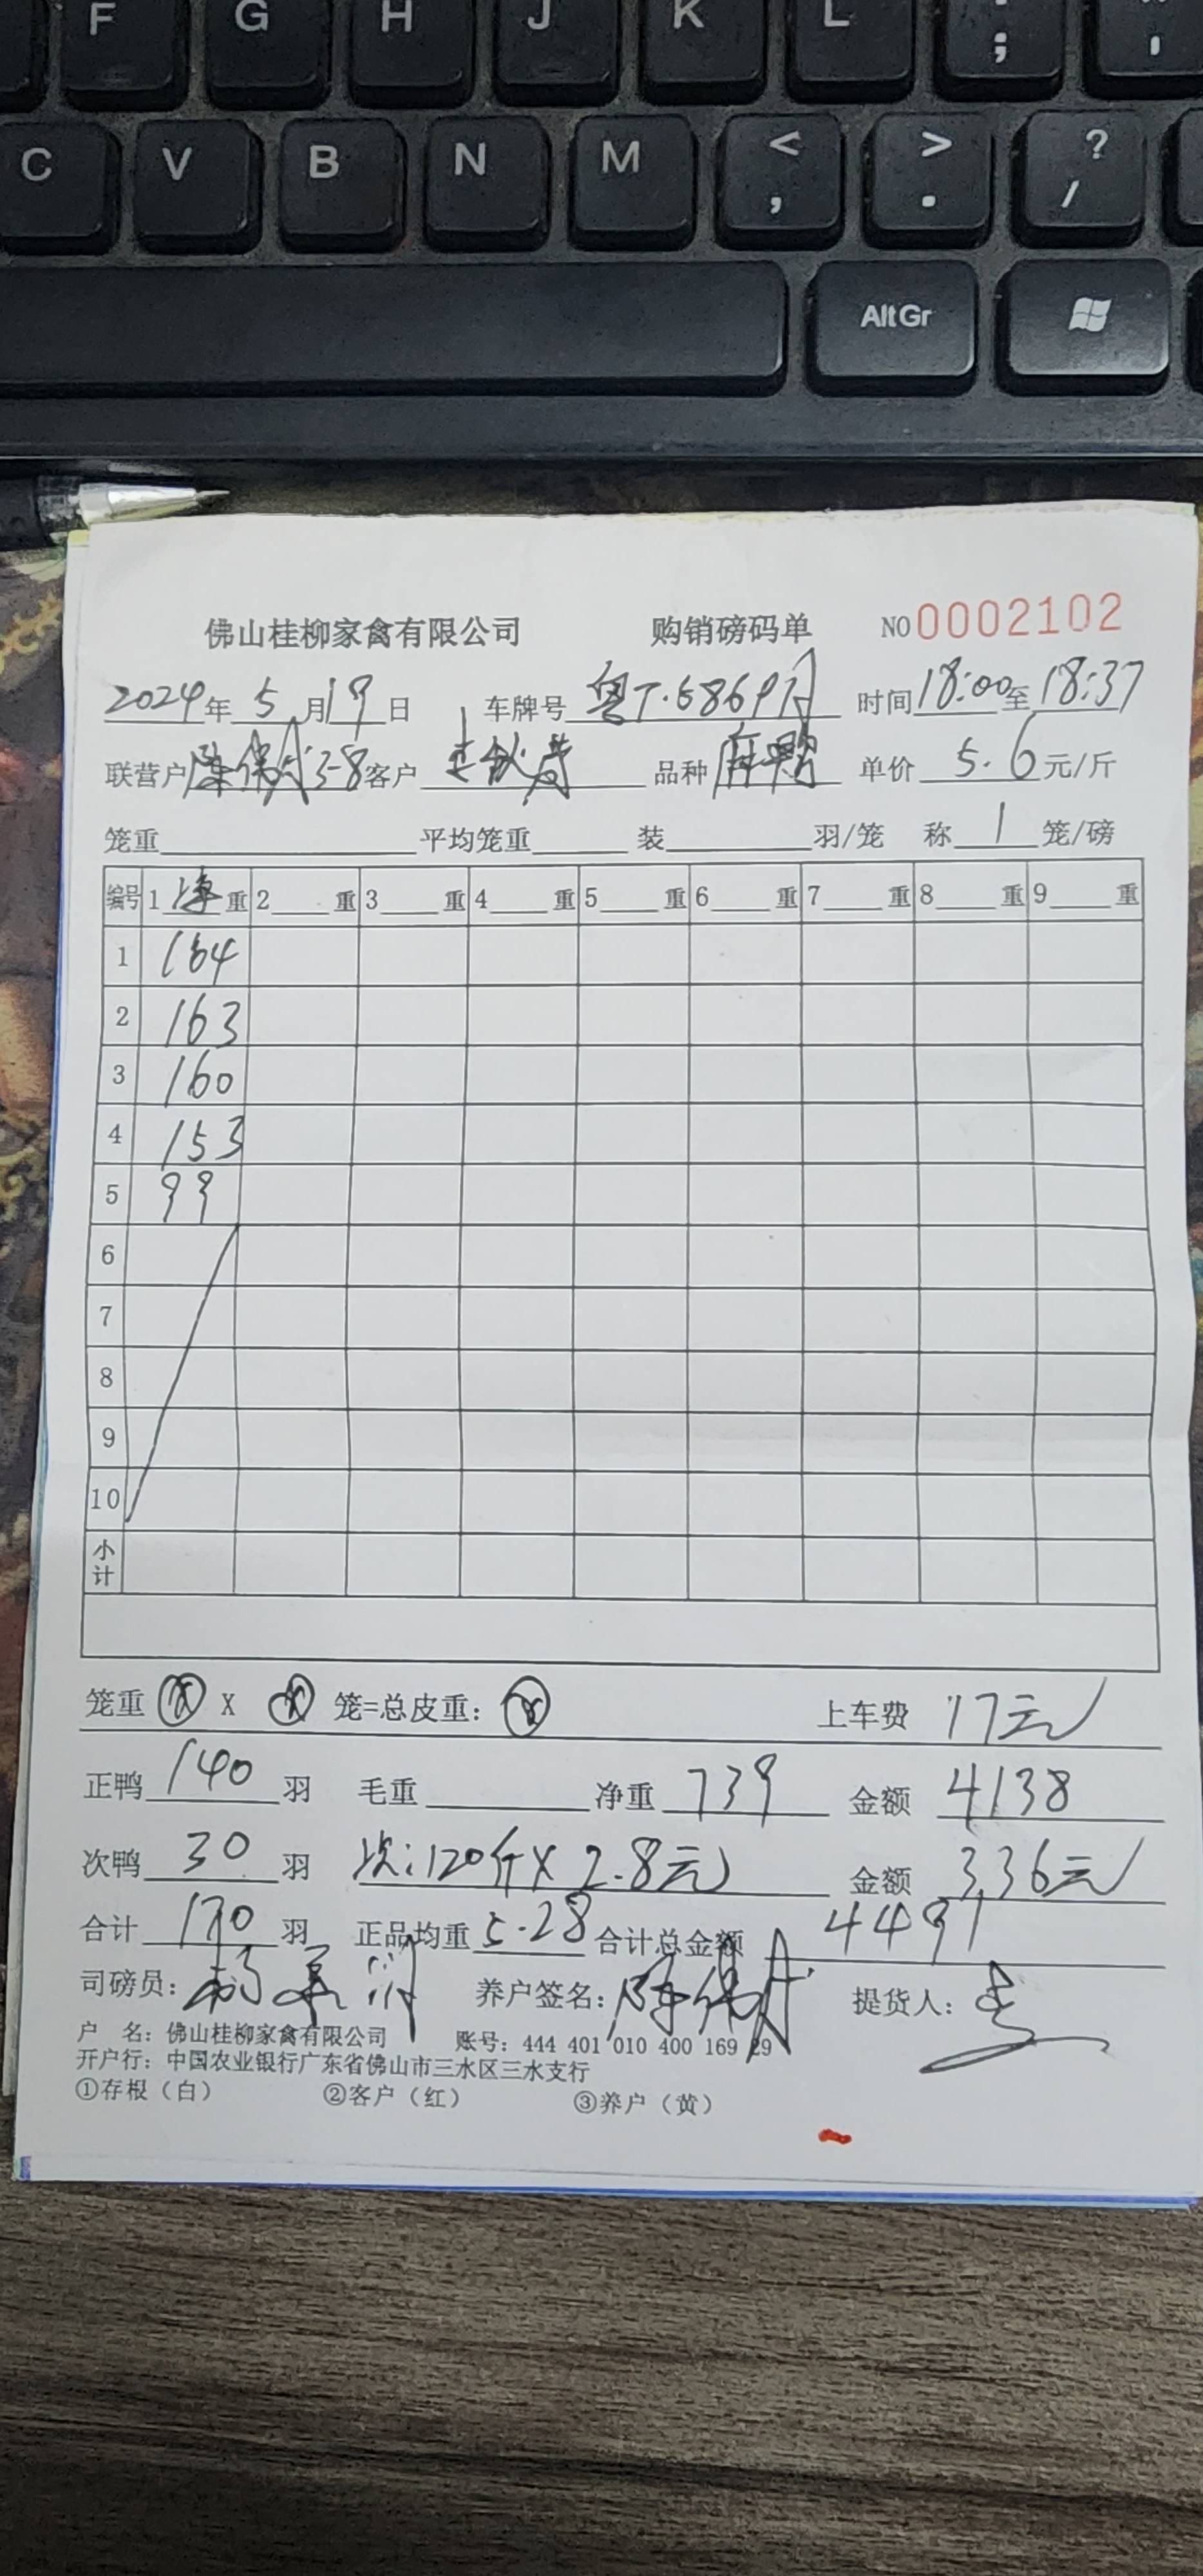 F G H J K L : ; " '
C V B N M < , > . ? /
AltGr
佛山桂柳家禽有限公司 购销磅码单 NO 0002102
2024年 5 月 19 日 车牌号 粤T·6869 时间 18:00 至 18:37
联营户 陈 3-8 客户 品种 麻鸭 单价 5.6 元/斤
笼重 平均笼重 装 羽/笼 称 1 笼/磅
编号 1 净 重 2 重 3 重 4 重 5 重 6 重 7 重 8 重 9 重
1 164
2 163
3 160
4 153
5 99
6
7
8
9
10
小计
笼重 X 笼=总皮重: 上车费 17元
正鸭 140 羽 毛重 净重 739 金额 4138
次鸭 30 羽 次:120斤X2.8元 金额 336元
合计 170 羽 正品均重 5.28 合计总金额 4491
司磅员: 杨 养户签名: 陈 提货人:
户 名: 佛山桂柳家禽有限公司 账号: 444 401 010 400 169 29
开户行: 中国农业银行广东省佛山市三水区三水支行
①存根（白） ②客户（红） ③养户（黄）